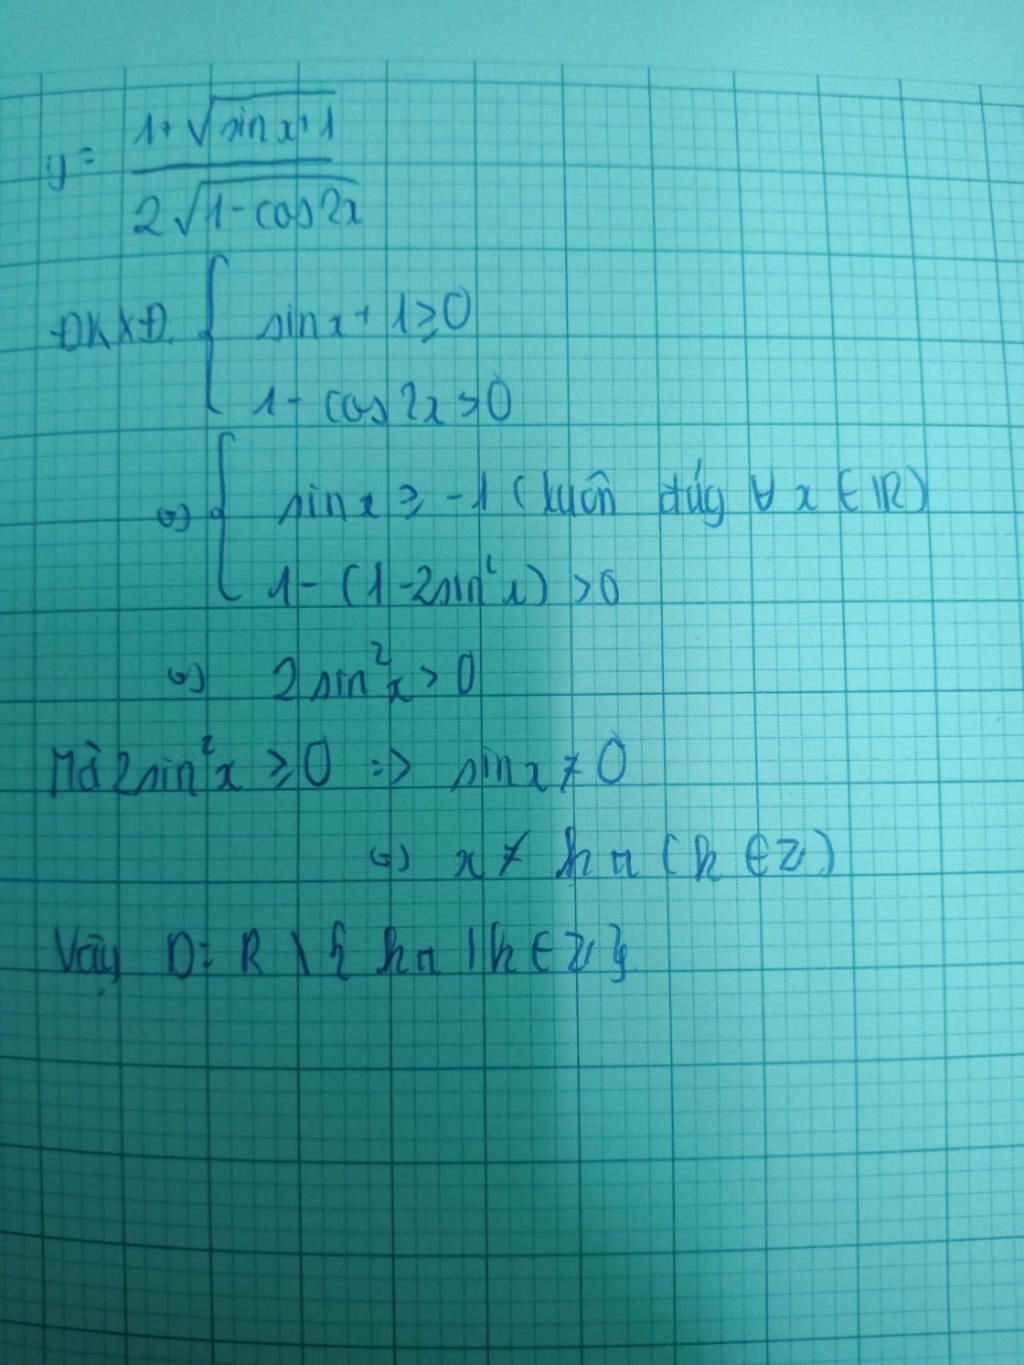 y = (1+√(sin x+1))/(2√(1-cos2x))
ĐKXĐ: { sinx + 1 ≥ 0
1 - cos 2x > 0
⇔ { sin x ≥ -1 (luôn đúg ∀ x ∈ ℝ)
1 - (1-2sin²x) > 0
⇔ 2sin²x > 0
Mà 2sin²x ≥ 0 => sin x ≠ 0
⇔ x ≠ kπ (k ∈ Z)
Vậy D = R \ { kπ | k ∈ Z }